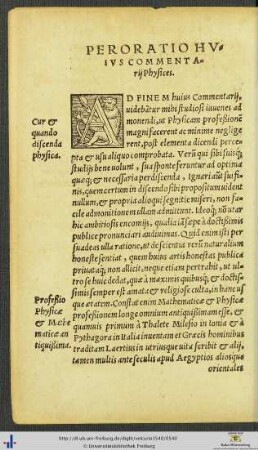 PERORATIO HV-
IVS COMMENTA-
rij Physices.
AD FINEM huius Commentarij,
uidebātur mihi studiosi iuuenes ad
monendi, ut Physicam professionē
magnifacerent ac minime neglige
rent, post elementa dicendi perce-
pta & usu aliquo comprobata.
Cur &
quando
discenda
physica.
studijs bene uolunt, sua sponte feruntur ad optima
quæq; & necessaria perdiscenda, Ignari aūt sui fi-
nis, quem certum in discendo sibi propositum uident
nullum, & propria alioqui segnitie miseri, non fa-
cile admonitionem ullam admittunt. Ideoq; nō utar
hic ambitiosis encomijs, qualia iā sæpe à doctissimis
publice pronunciari audiuimus. Quid enim isti per
suadeas ulla ratione, ut
honeste sentiat, quem huius artis honestas publica
priuataq; non allicit, neque etiam pertrahit, ut ul-
tro se huic dedat, quæ à maximis quibusq; & doctis-
simis semper est amata, & religiose culta, in hanc us
que ætatem. Constat enim Mathematicæ & Physicæ
professionem longe omnium antiquissimam esse, &
quamuis primum à Thalete Milesio in Ionia & à
Pythagora in Italia inuentam et Græcis hominibus
traditam Laertius in utriusque uita scribit & alij,
tamen multis ante seculis apud Ægyptios aliosque
orientales
Professio
Physicæ
& Ma
thematicæ an
tiquissima.
http://dl.ub.uni-freiburg.de/diglit/velcurio1540/0540
© Universitätsbibliothek Freiburg